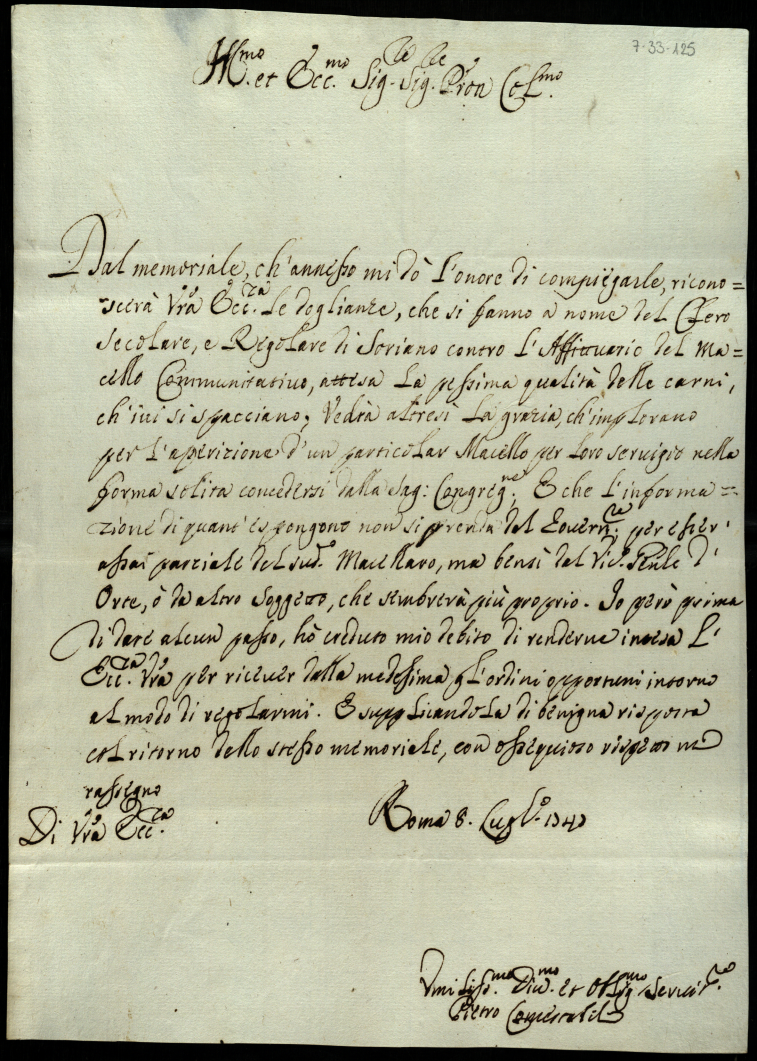 7-33-125
Ill.mo et Ecc.mo Sig.re Sig.re Pron Col.mo
Dal memoriale, ch'annesso mi dò l'onore di compiegarle, ricono=
scerà Vrà Ecc.za le doglianze, che si fanno a nome del Clero
Secolare, e Regolare di Soriano contro l'Affittuario del Ma=
cello Communitativo, attesa la pessima qualità delle carni,
ch'ivi si spacciano; Vedrà altresì la grazia, ch'implorano
per l'aperizione d'un particolar Macello per loro servigio nella
forma solita concedersi dalla Sag: Congreg.ne E che l'informa=
zione di quant'espongono non si prenda dal Govern.re per esser'
assai parziale del sud.o Macellaro, ma bensì dal Vic.o Gñle d'
Orte, ò da altro Soggetto, che sembrerà più proprio. Io però prima
di dare alcun passo, hò creduto mio debito di renderne intesa l'
Ecc.za Vrà per ricever dalla medesima gl'ordini opportuni intorno
al modo di regolarmi. E supplicandola di benigna risposta
col ritorno dello stesso memoriale, con ossequioso rispetto mi
rassegno
Di Vrà Ecc.za
Roma 8. Lugl.o
Umiliss.mo Div.mo et Oblig.mo Servit.re
Pietro